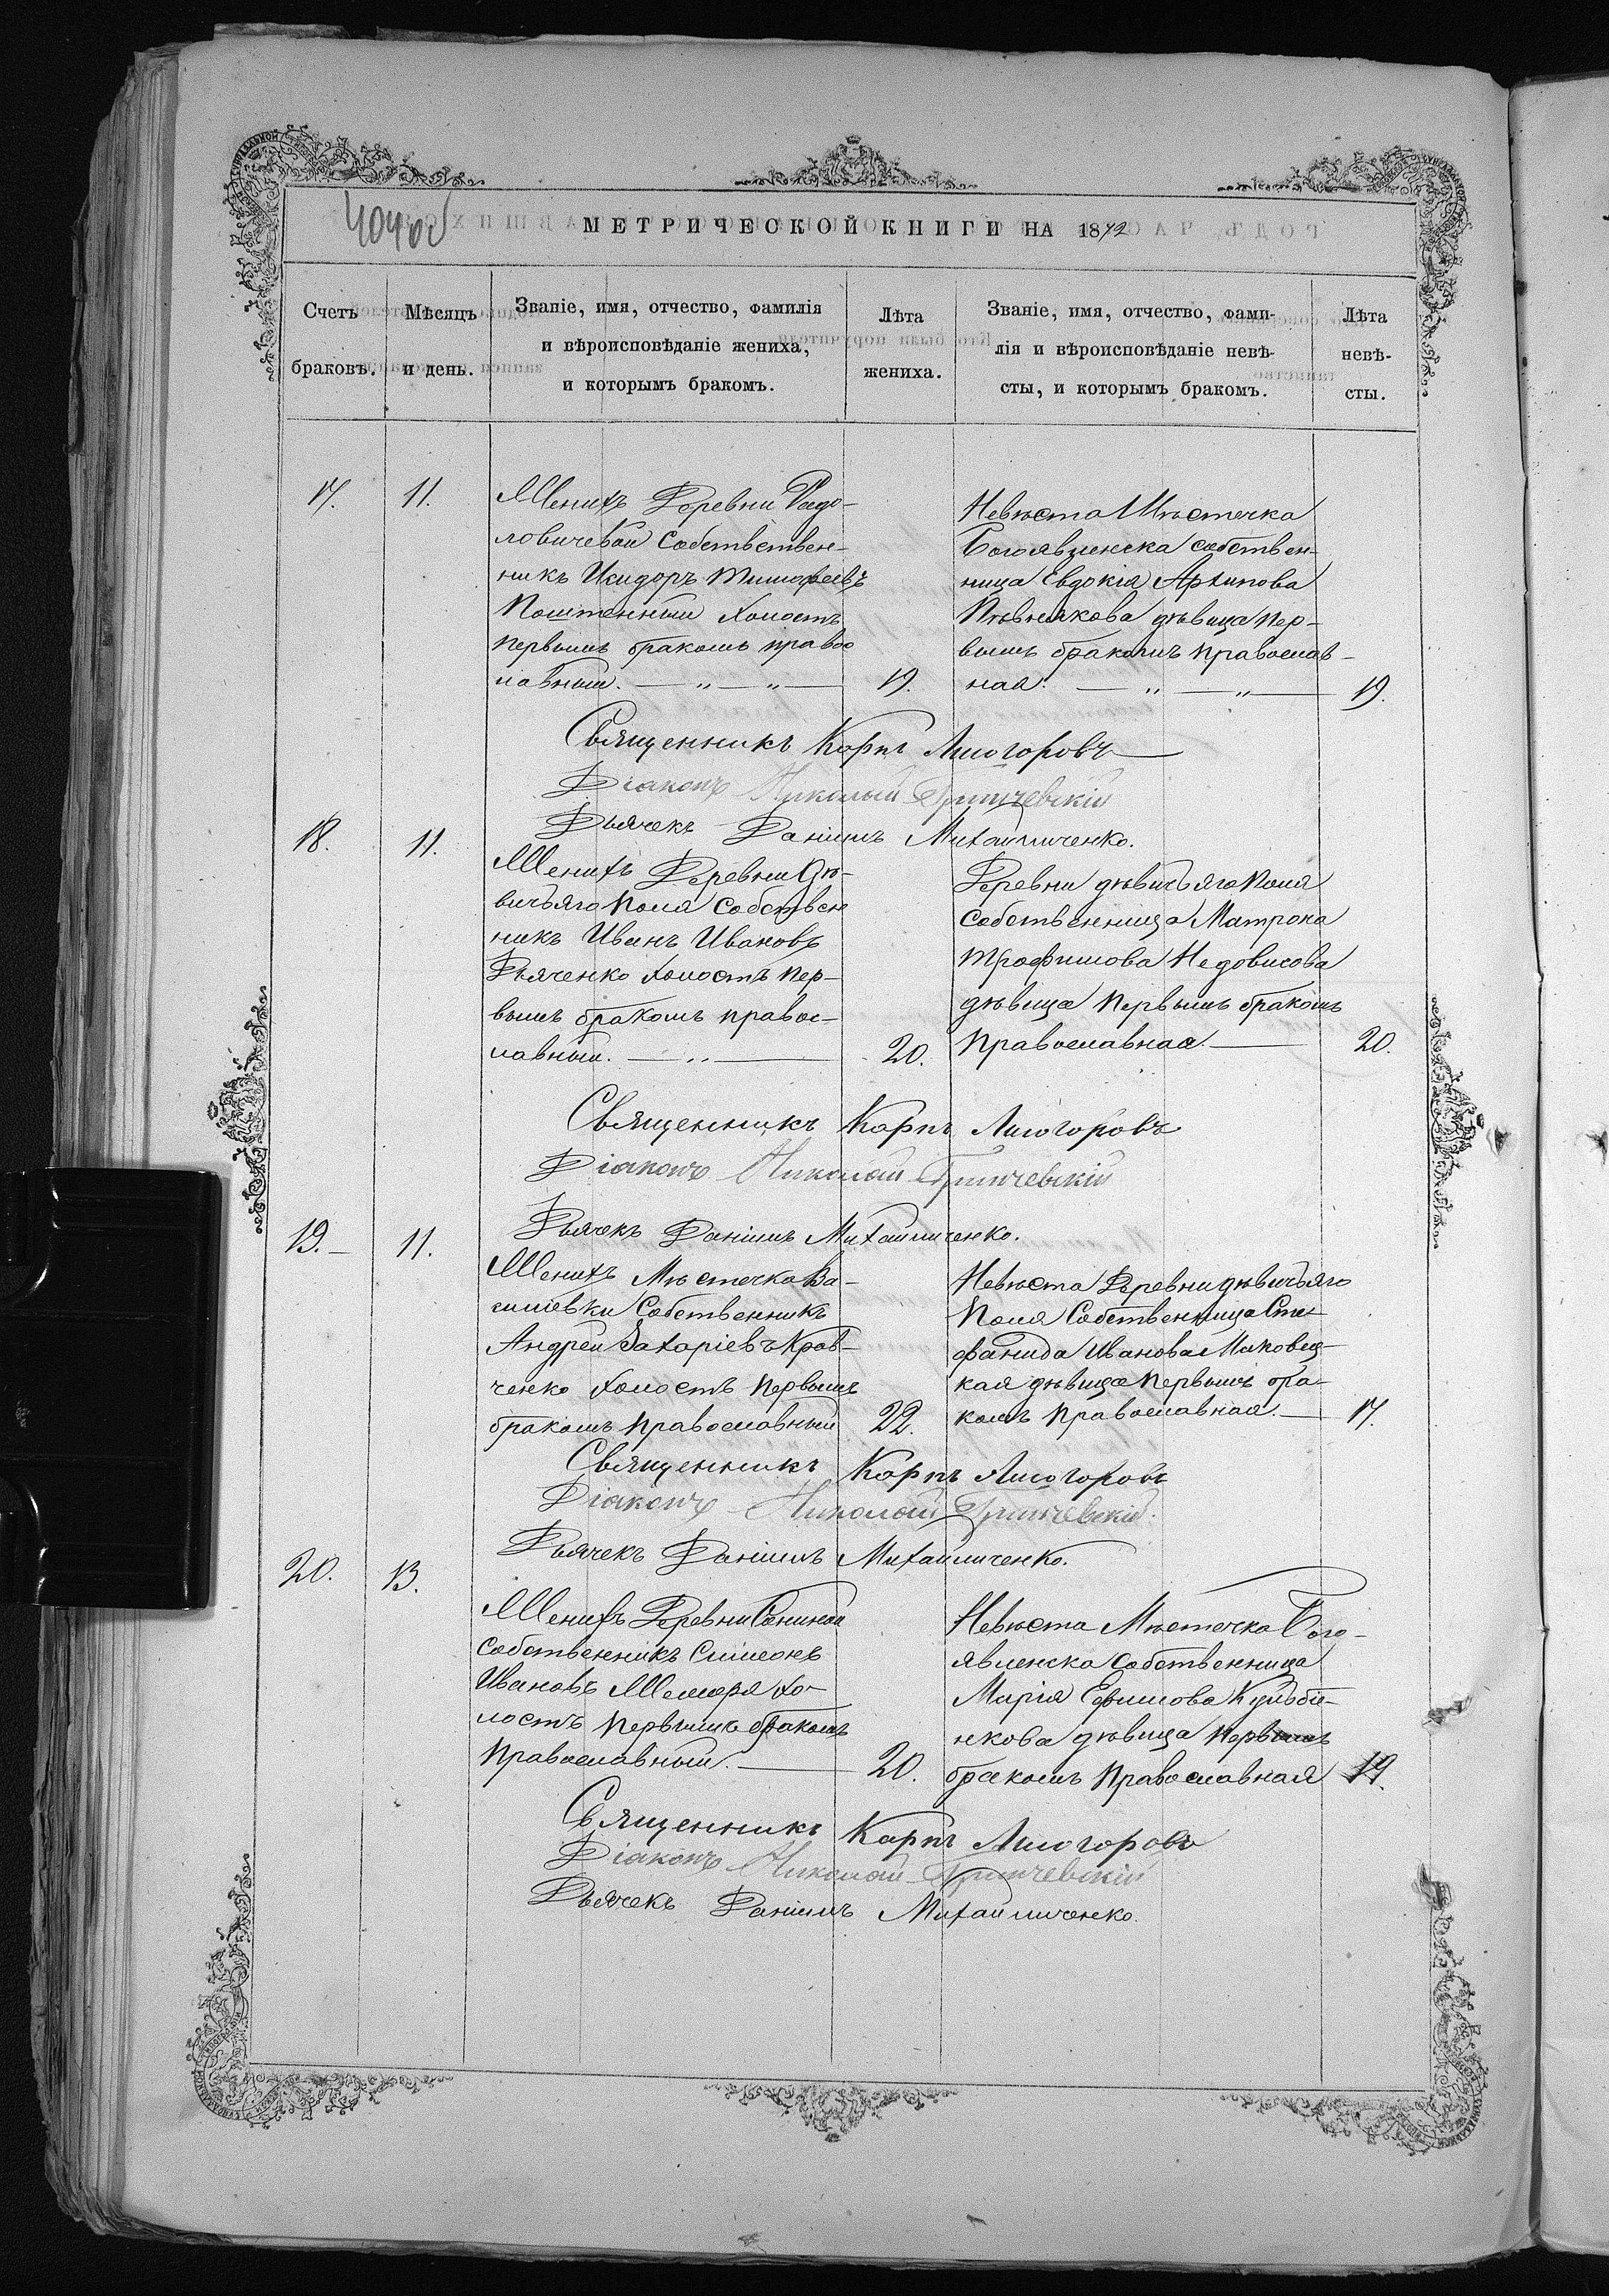 404об
МЕТРИЧЕСКОЙ КНИГИ НА 1872
Счетъ
браковъ.
Мѣсяцъ
и день.
Званіе, имя, отчество, фамилія
и вѣроисповѣданіе жениха,
и которымъ бракомъ.
Лѣта
жениха.
Званіе, имя, отчество, фами-
лія и вѣроисповѣданіе невѣ-
сты, и которымъ бракомъ.
Лѣта
невѣ-
сты.
17.
11.
Женихъ Деревни Радо-
ловичевой Собственн-
никъ Исидоръ Тимофеевъ
Поштенный холостъ
первымъ бракомъ правос
лавный. — „ — „ —
19.
Невѣста Мѣстечка
Богоявленска собствен-
ница Евдокія Архипова
Пѣвнякова дѣвица пер-
вымъ бракомъ православ-
ная. — „ — „ —
19.
Священникъ Карпъ Лисогоровъ
Діаконъ Николай Гринчевскій
Дьячекъ Даніилъ Михайличенко.
18.
11.
Женихъ Деревни Дѣ-
вичьяго Поля Собствен
никъ Иванъ Ивановъ
Дьяченко холостъ пер-
вымъ бракомъ правос-
лавный. — „ —
20.
Деревни дѣвичьяго Поля
Собственница Матрона
Трофимова Недовисова
дѣвица первымъ бракомъ
Православная. —
20.
Священникъ Карпъ Лисогоровъ
Діаконъ Николай Гринчевскій
Дьячекъ Даніилъ Михайличенко.
19. —
11.
Женихъ Мѣстечка Ва-
силіевки Собственникъ
Андрей Захаріевъ Крав-
ченко холостъ первымъ
бракомъ Православный
22.
Невѣста Деревни дѣвичьяго
Поля Собственница Сте-
фанида Иванова Маковец-
кая дѣвица первымъ бра-
комъ Православная. —
17.
Священникъ Карпъ Лисогоровъ
Діаконъ Николай Гринчевскій.
Дьячекъ Даніилъ Михайличенко.
20.
13.
Женихъ Деревни Сениной
Собственникъ Симеонъ
Ивановъ Шемара хо-
лостъ первымъ бракомъ
Православный. —
20.
Невѣста Мѣстечка Бого-
явленска Собственница
Марія Ефимова Кульбі-
нкова дѣвица первымъ
бракомъ Православная
19.
Священникъ Карпъ Лисогоровъ
Діаконъ Николай Гринчевскій
Дьячекъ Даніилъ Михайличенко.